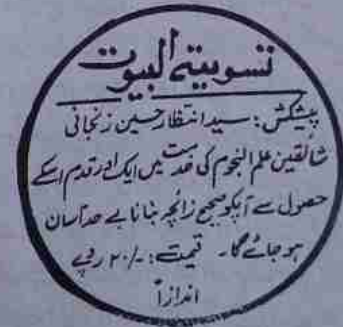 تسویتہ البیوت
پیشکش: سید انتظار حسین زنجانی
شائقین علم النجوم کی خدمت میں ایک اور قدم اسکے
حصول سے آپکو صحیح زائچہ بنانا بے حد آسان
ہو جائے گا۔ قیمت: -/۲۰ روپے
اندازاً